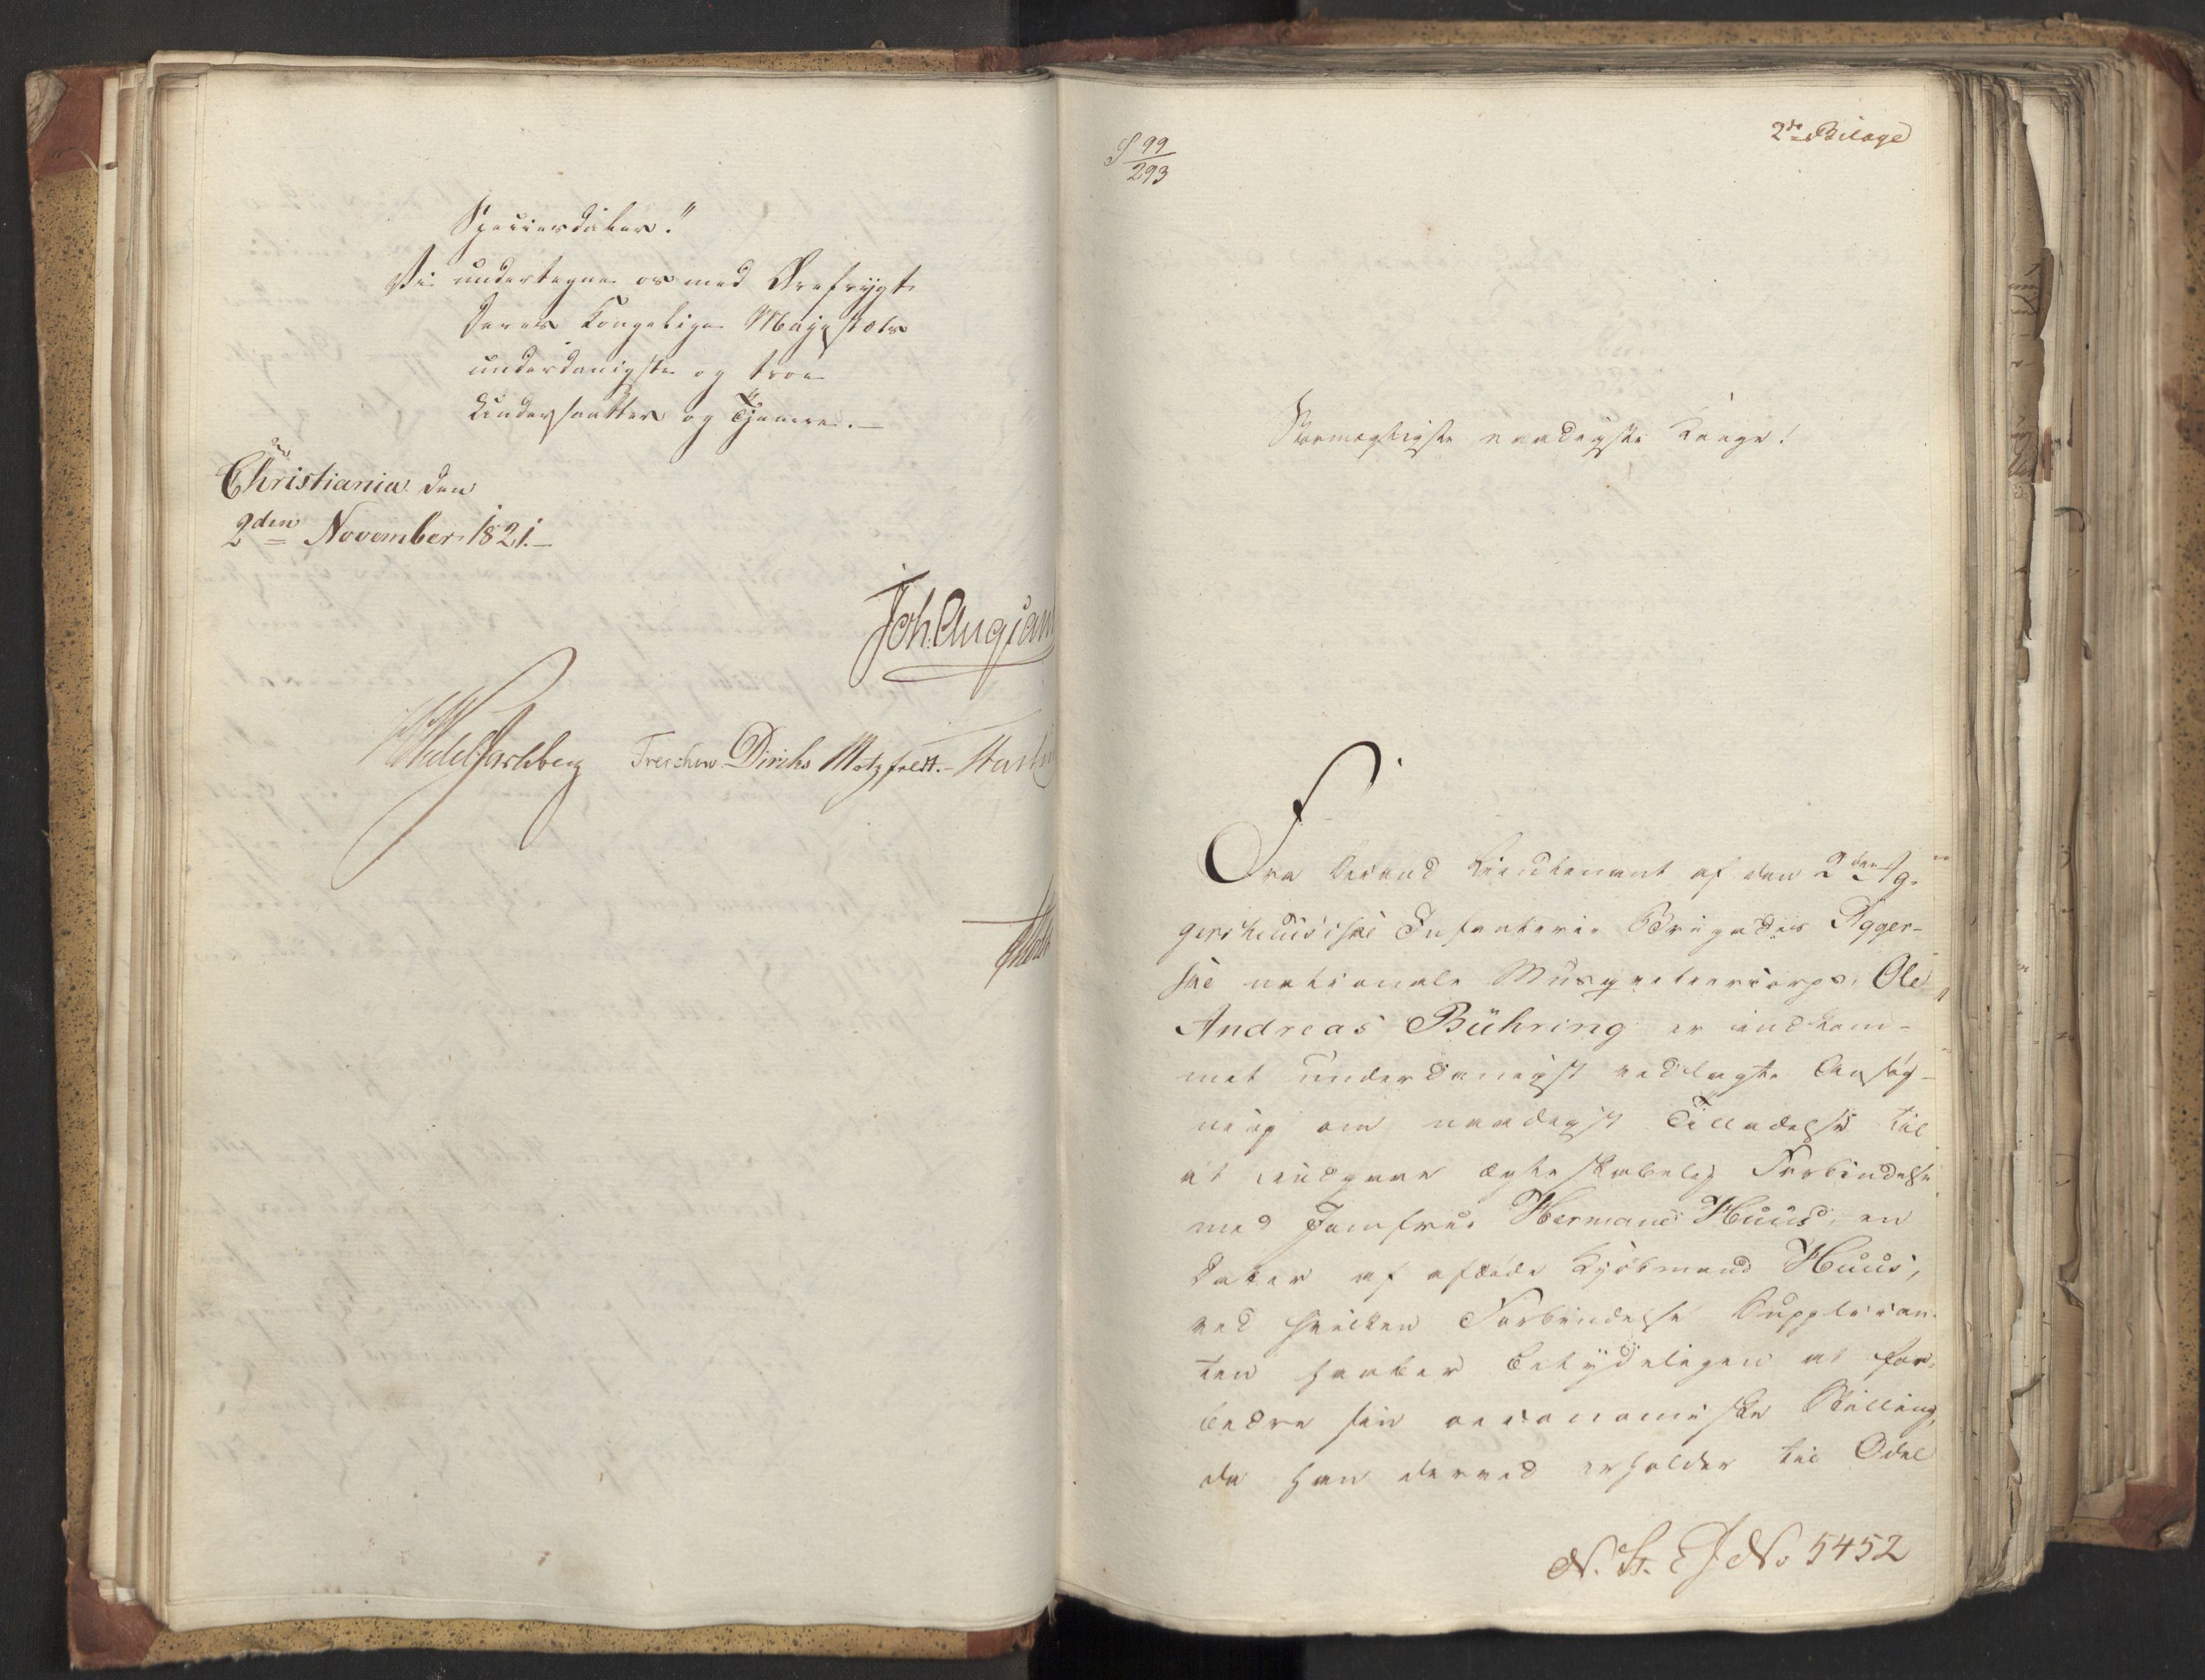 Speciesdaler."
Vi undertegne os med Ærefrygt
Deres Kongelige Majestæts
underdanigste og troe
Undersaatter og Tjenere.—
Christiania den
2den November 1821.—
Joh. Aug San
Wedel Jarlsberg Treschow Diriks Motzfeldt.
2det Bilage
S 99
293
Stormægtigste naadigste Konge!
Fra Second Lieutenant af den 2den Ag-
gershuusiske Infanterie Brigades Agger-
ske nationale Musqueteercorps, Ole
Andreas Bühring er indkom-
met underdanigst vedlagte Ansøg-
ning om naadigst Tilladelse til
at indgaae ægteskabelig Forbindelse
med Jomfrue Hermane Huus, en
Datter af afdøde Kjøbmand Huus,
ved hvilken Forbindelse Supplican-
ten haaber betydeligen at for-
bedre sin oeconomiske Stilling,
da han derved erholder til Odel
N. St. J No 5452